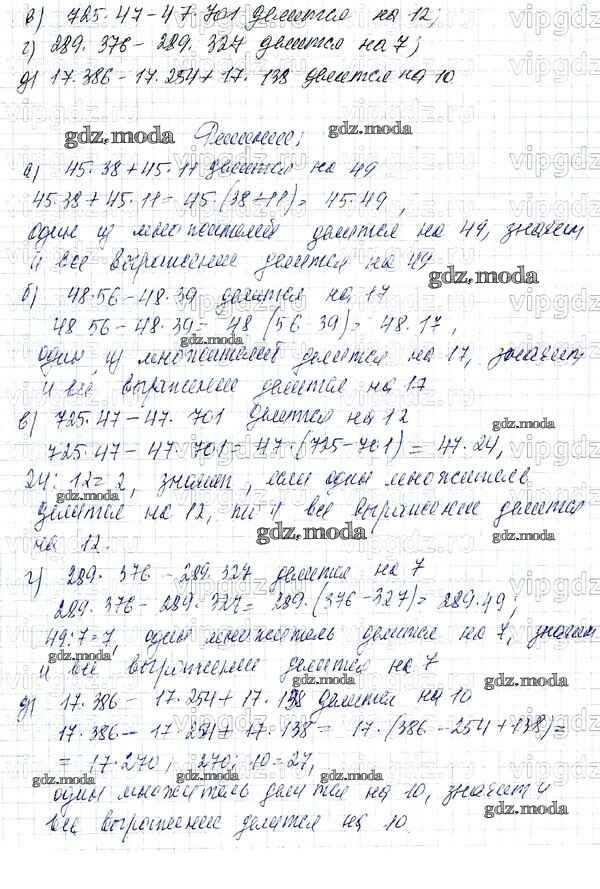 в) 725·47-47·701 делится на 12;
г) 289·376-289·327 делится на 7;
д) 17·386-17·254+17·138 делится на 10
Решение;
а) 45·38+45·11 делится на 49
45·38+45·11=45·(38+11)=45·49,
один из множителей делится на 49, значит
и все выражение делится на 49
б) 48·56-48·39 делится на 17
48 56-48·39=48 (56 39)=48·17,
один из множителей делится на 17, значит
и всё выражение делится на 17
в) 725·47-47·701 делится на 12
725·47-47·701=47·(725-701)=47·24,
24:12=2, значит, если один множитель
делится на 12, то и все выражение делится
на 12.
г) 289·376-289·327 делится на 7
289·376-289·327=289·(376-327)=289·49;
49:7=7, один множитель делится на 7, значит
и всё выражение делится на 7
д) 17·386-17·254+17·138 делится на 10
17·386-17·254+17·138=17·(386-254+138)=
=17·270; 270:10=27,
один множитель делится на 10, значит и
все выражение делится на 10.
gdz.moda
vipgdz